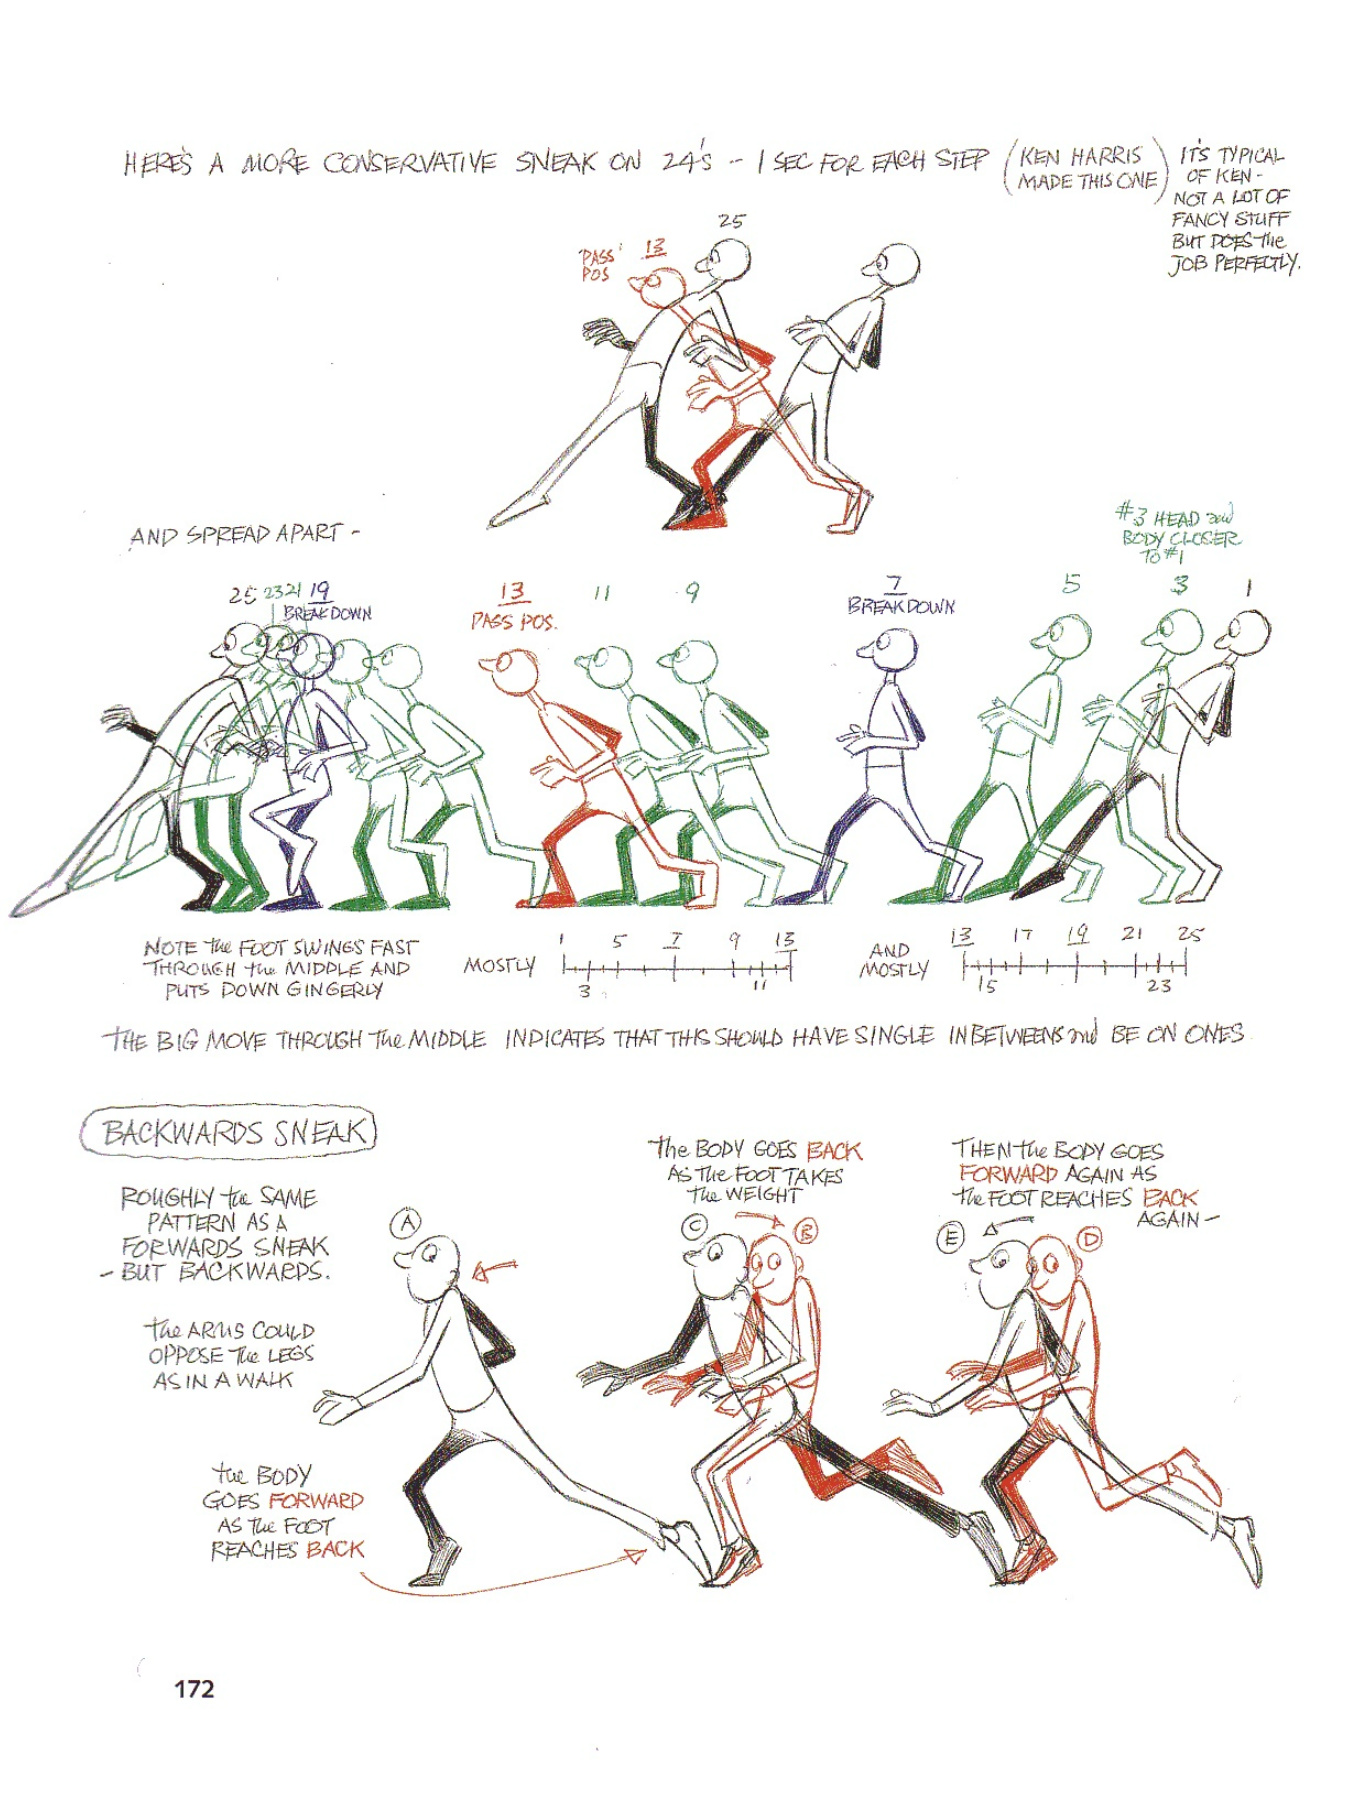 HERE'S A MORE CONSERVATIVE SNEAK ON 24'S -- 1 SEC FOR EACH STEP
(KEN HARRIS
MADE THIS ONE)
IT'S TYPICAL
OF KEN -
NOT A LOT OF
FANCY STUFF
BUT DOES the
JOB PERFECTLY.
25
'PASS'
POS
13
AND SPREAD APART -
#3 HEAD and
BODY CLOSER
TO #1
25 23 21 19
BREAKDOWN
13
PASS POS.
11
9
7
BREAKDOWN
5
3
1
NOTE the FOOT SWINGS FAST
THROUGH the MIDDLE AND
PUTS DOWN GINGERLY
MOSTLY
1 5 7 9 13
3 11
AND
MOSTLY
13 17 19 21 25
15 23
THE BIG MOVE THROUGH The MIDDLE INDICATES THAT THIS SHOULD HAVE SINGLE INBETWEENS and BE ON ONES
BACKWARDS SNEAK
ROUGHLY the SAME
PATTERN AS A
FORWARDS SNEAK
- BUT BACKWARDS.
the ARMS COULD
OPPOSE The LEGS
AS IN A WALK
the BODY
GOES FORWARD
AS The FOOT
REACHES BACK
A
The BODY GOES BACK
AS The FOOT TAKES
the WEIGHT
C
B
THEN the BODY GOES
FORWARD AGAIN AS
the FOOT REACHES BACK
AGAIN -
E
D
172